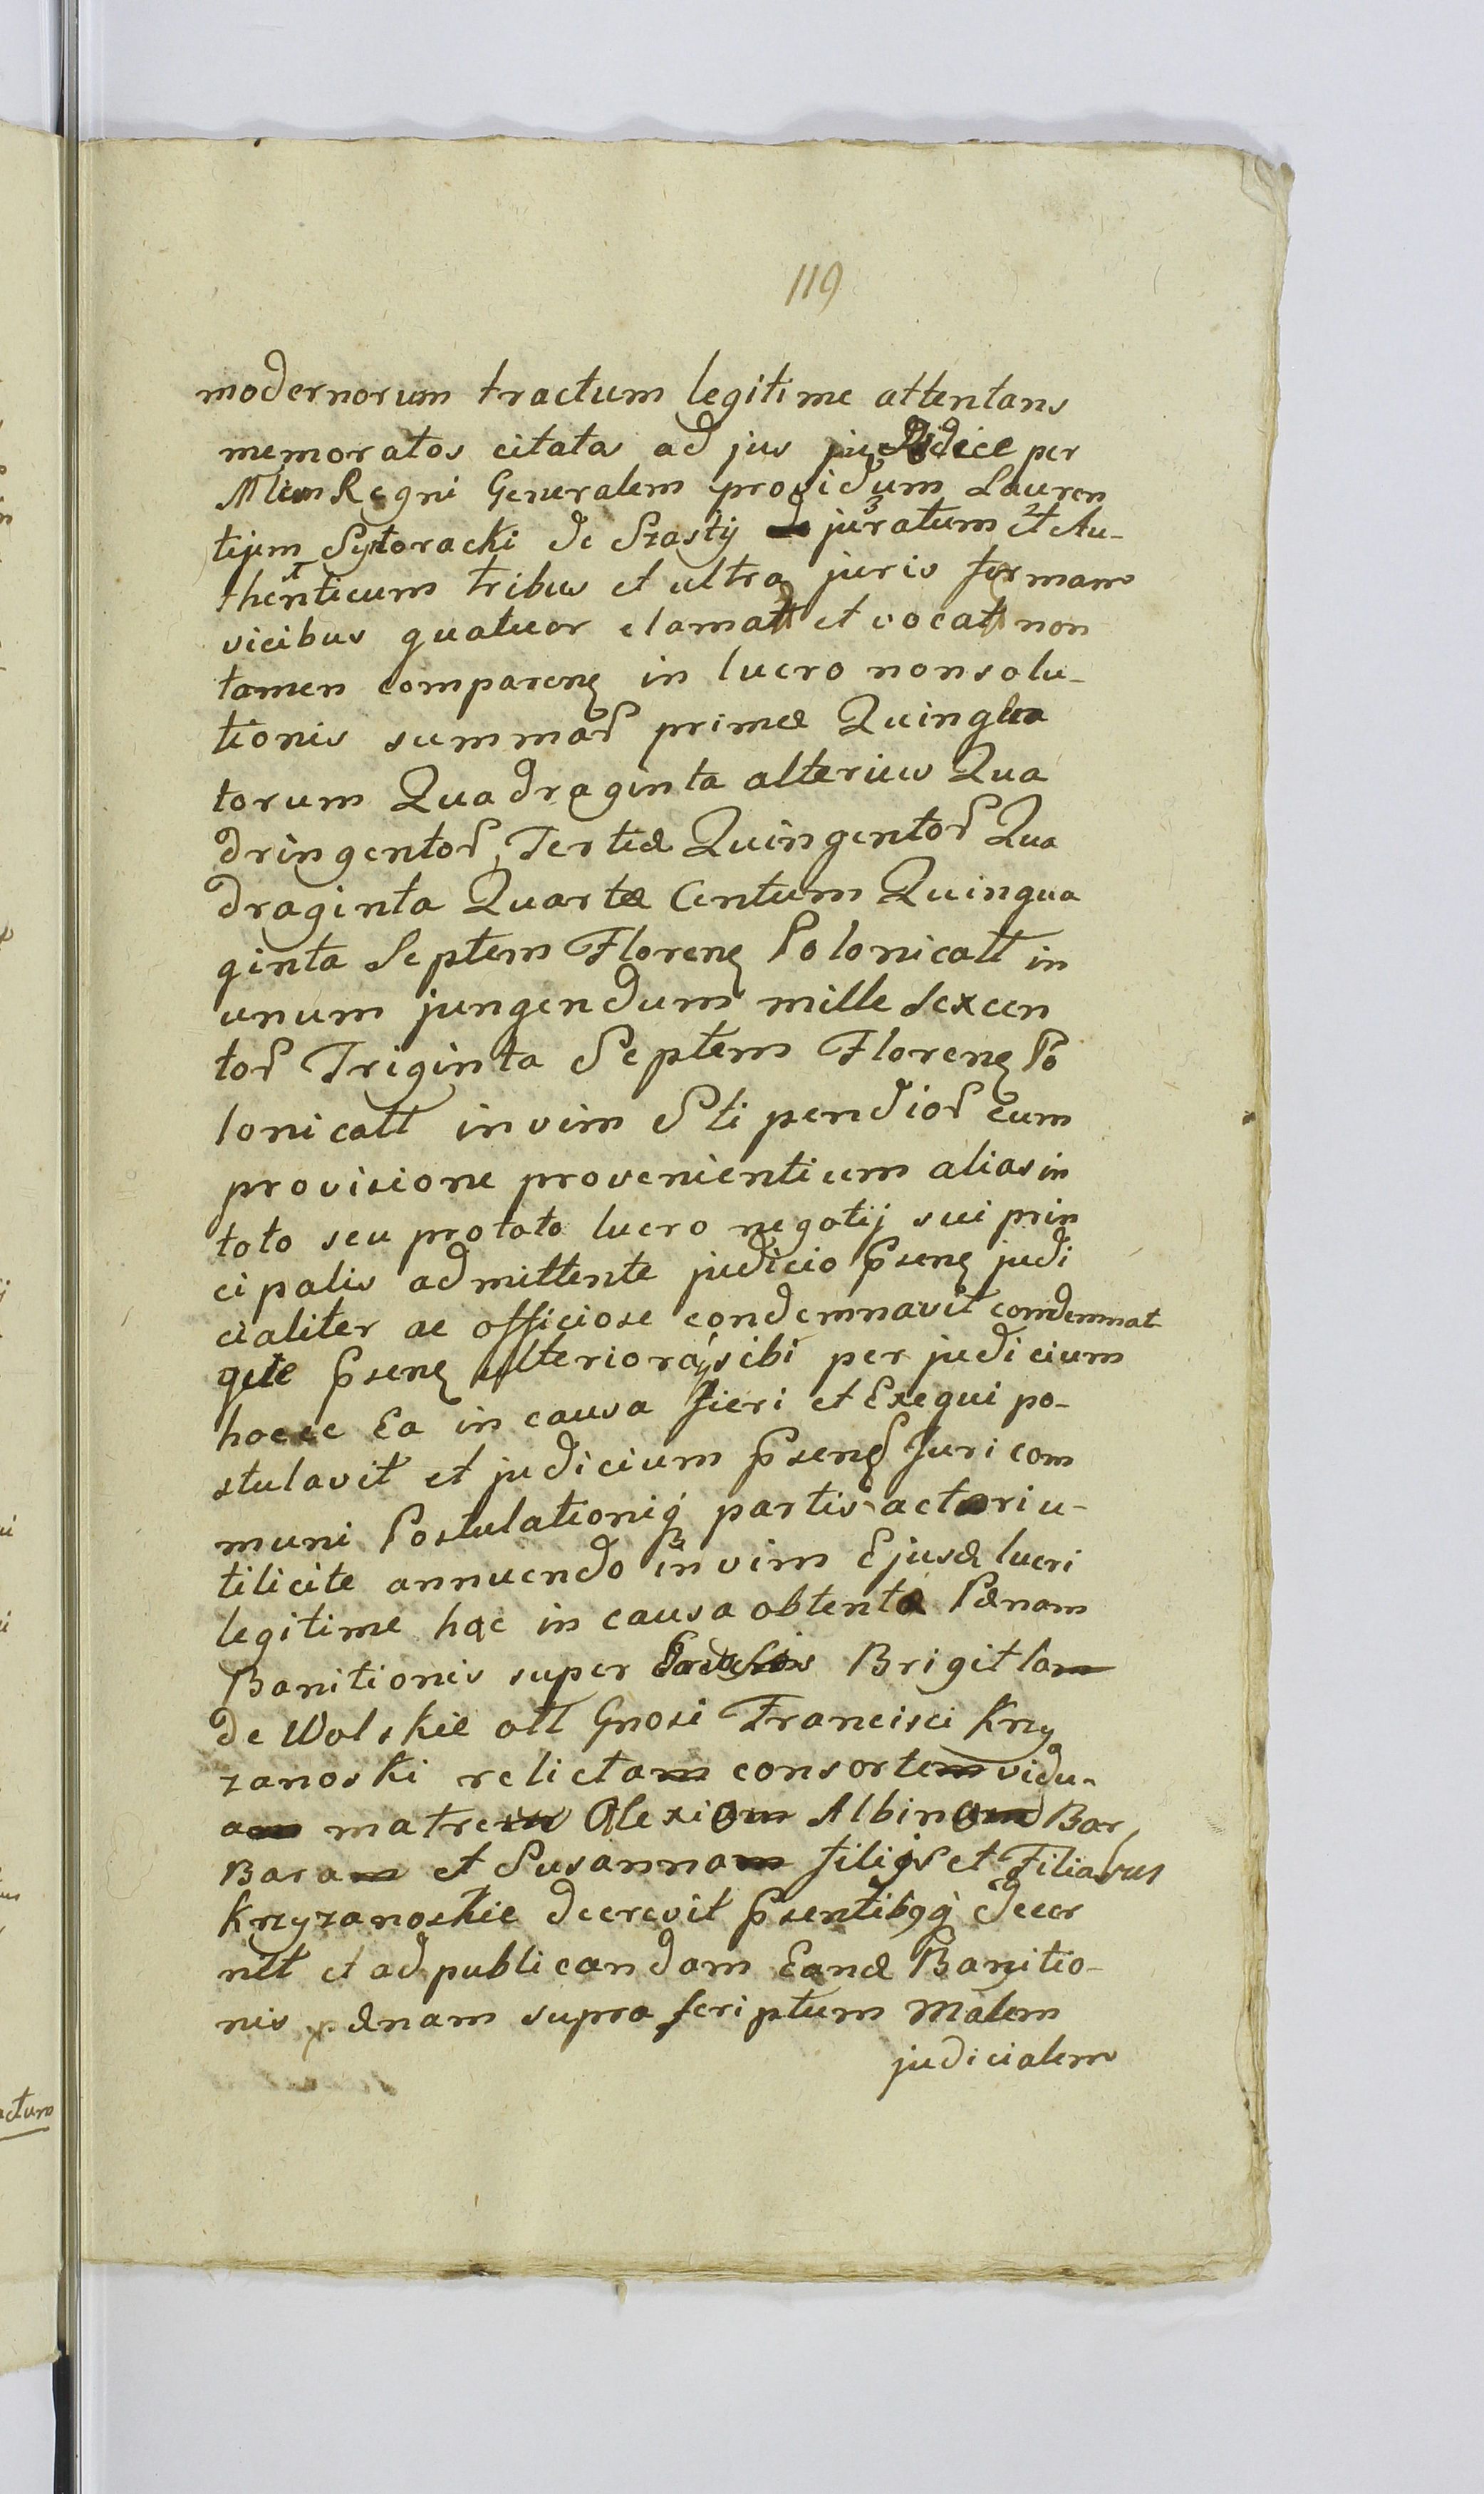 119
modernorum tractum legitime attentans
memoratos citatos ad jus juridice per
Mlem Regni Generalem providum Lauren
tium Sytoracki de Szasty juratum et Au-
thenticum tribus et ultra juris formam
vicibus quatuor clamatt et vocatt non
tamen comparenę in lucro non solu-
tionis summar primæ Quingen
torum Quadraginta alterius Qua
dringentor Tertiæ Quingentor Qua
draginta Quartæ Centum Quinqua
ginta Septem Florenę Polonicatt in
unum jungendum mille sexcen
tor Triginta Septem Florenę Po
lonicatt in vim Stipendior cum
provisione provenientium alias in
toto seu pro toto lucro negotij sui prin
cipalis admittente judicio Psenę judi
cialiter ac officiose condemnavit condemnat
que Psenę ulteriora sibi per judicium
hocce Ea in causa fieri et Exequi po-
stulavit et judicium Psenę Juri com
muni Postulationiq partis actoriu-
ti licite annuendo in vim Ejusd lucri
legitime hac in causa obtentæ Pænam
Banitionis super Brigittam
de Wolskie ott Gnosi Francisci Krzy
zanoski relictam consortem vidu-
am matrem Alexium Albinum Bar
Baram et Susannam filijs et Filiabus
Krzyzanoskie decrevit Psentibqq decer
nit et ad publicandam Eand Banitio-
nis pænam supra scriptum Mālem
judicialem